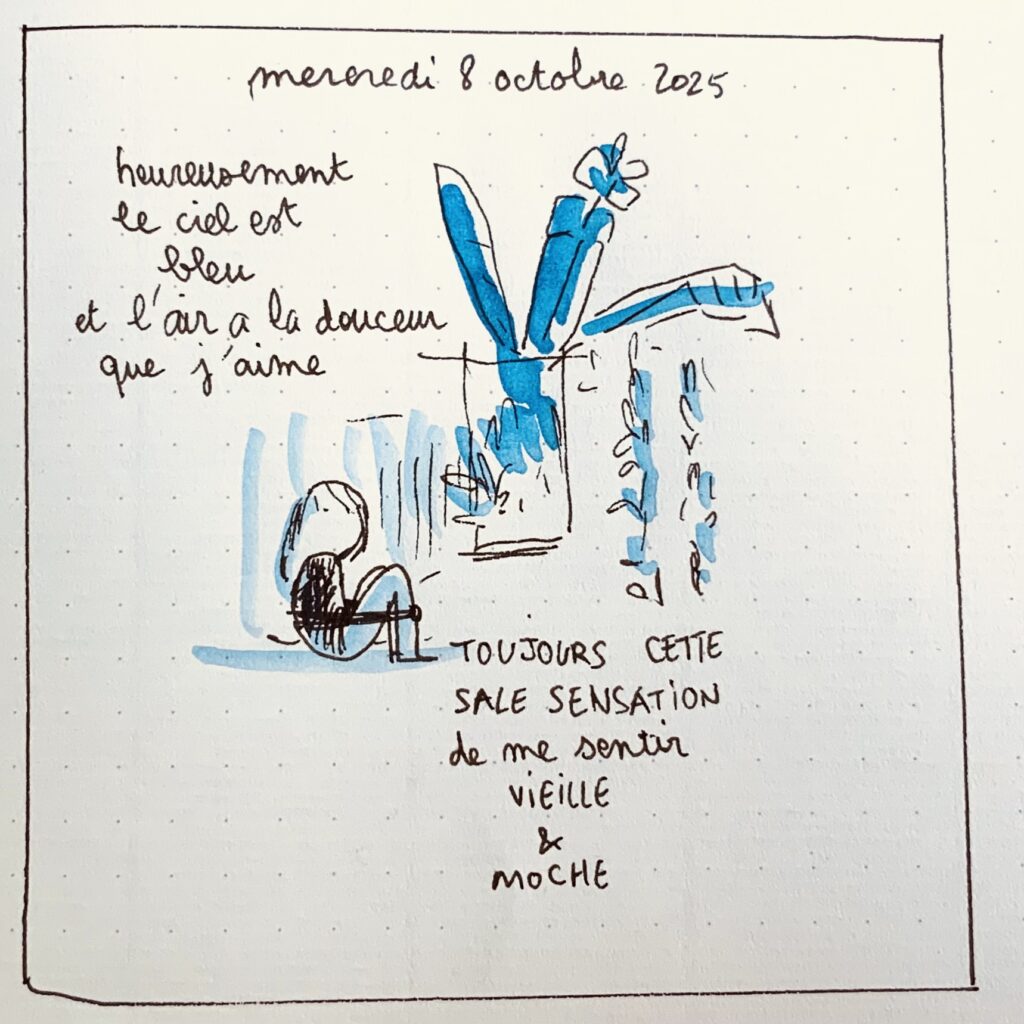 mercredi 8 octobre 2025
heureusement
le ciel est
bleu
et l'air a la douceur
que j'aime
TOUJOURS CETTE
SALE SENSATION
de me sentir
VIEILLE
&
MOCHE